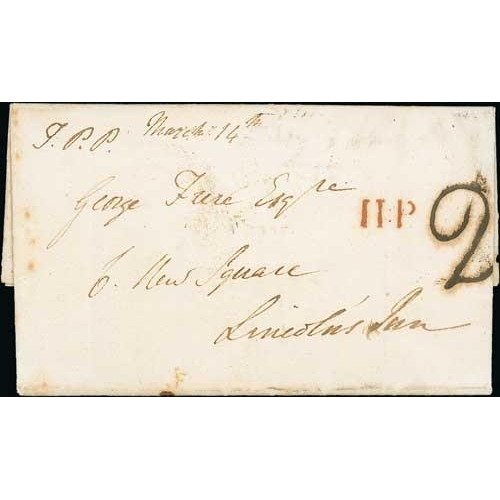 T.P.P. March 14th
George Frere Esqre
II.P 2
6. New Square
Lincoln's Inn